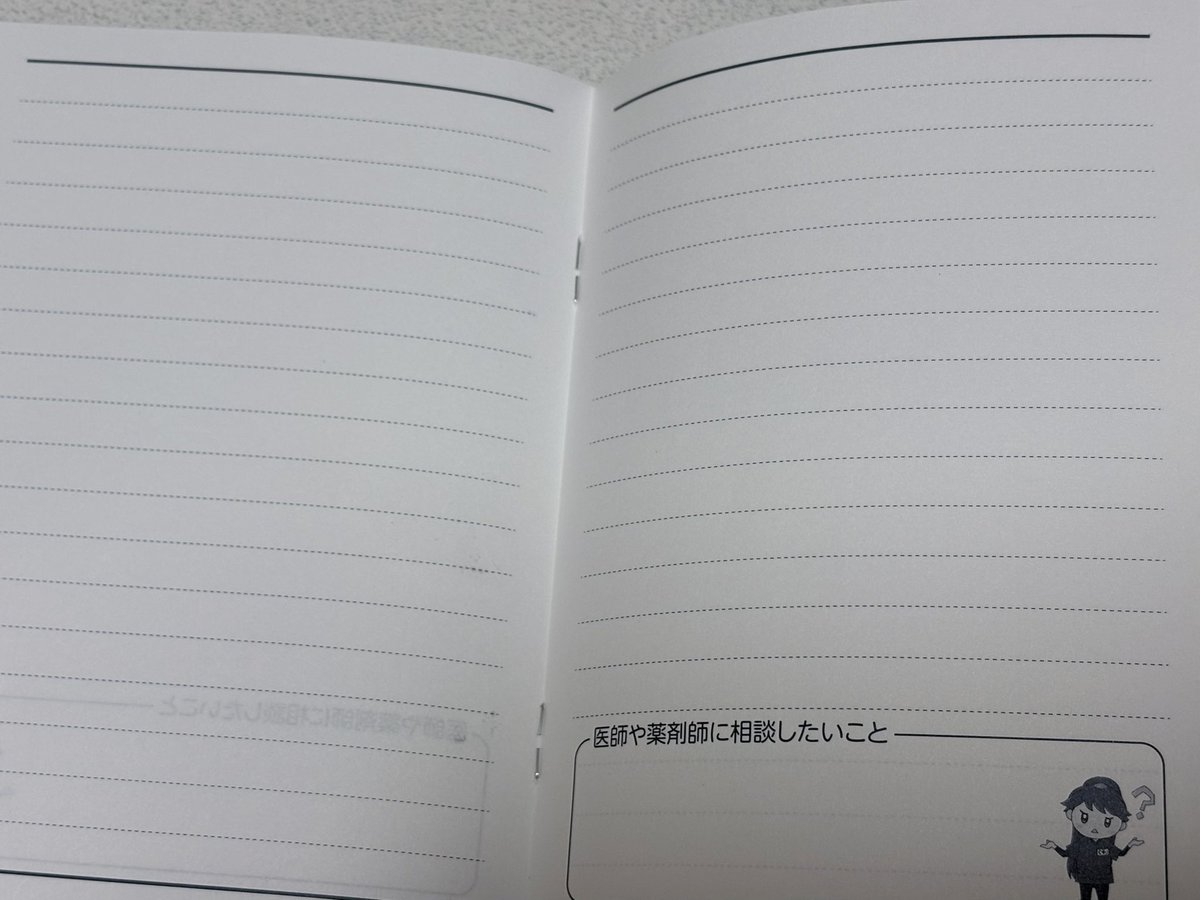 医師や薬剤師に相談したいこと
?